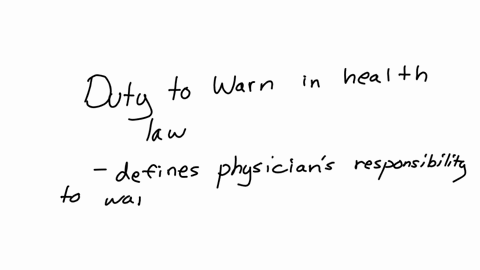 Duty to Warn in health
law
- defines physician's responsibility
to